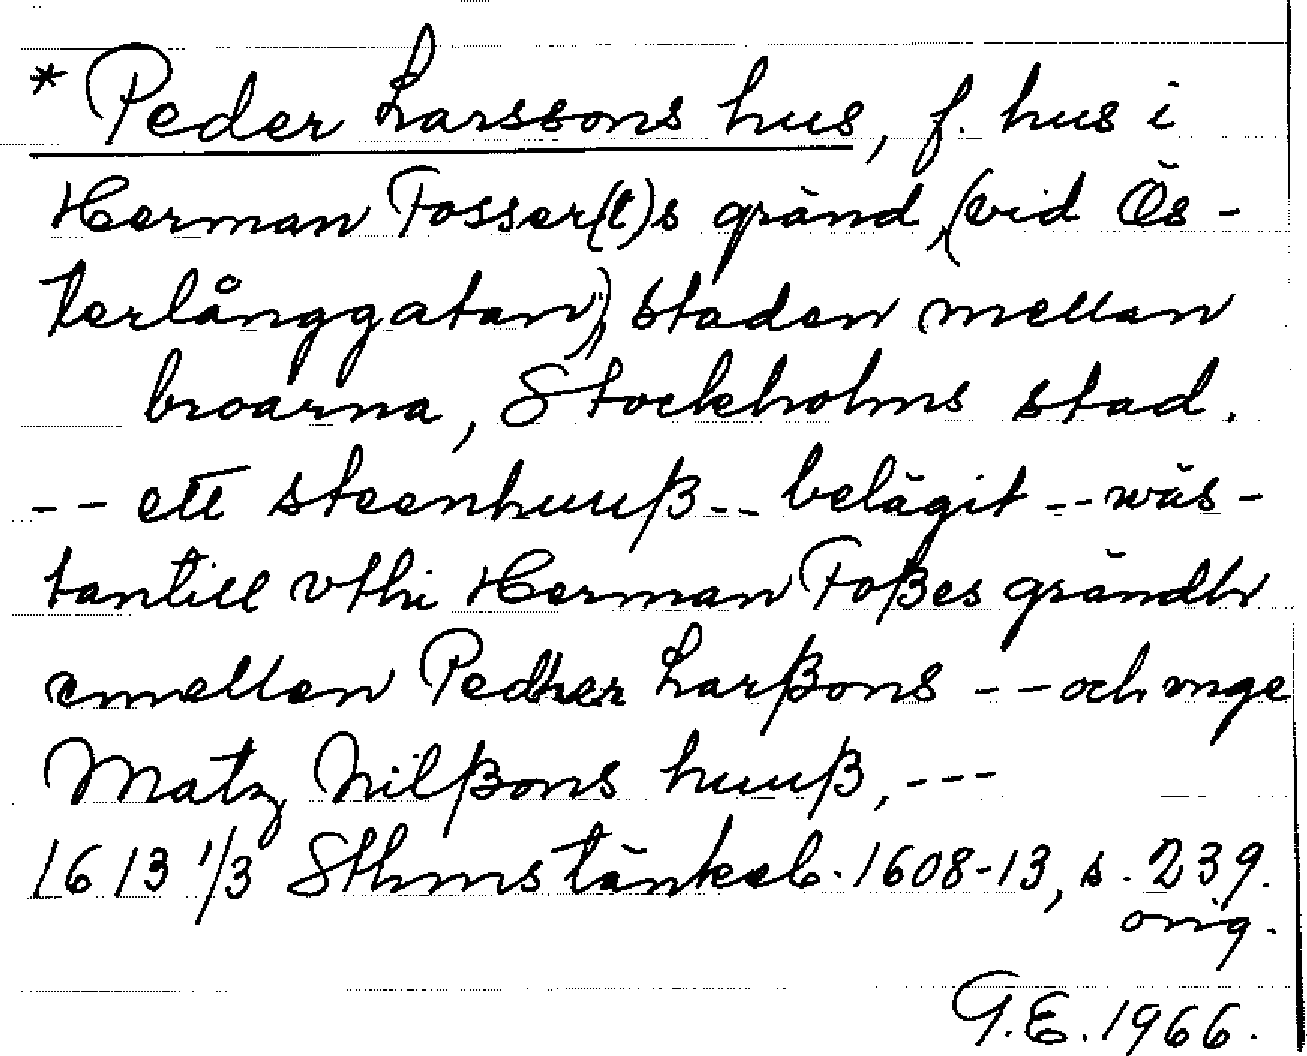 * Peder Larssons hus, f. hus i
Herman Fosser(t)s gränd, (vid Ös-
terlånggatan), staden mellan
broarna, Stockholms stad.
-- ett steenhuuß -- belägit -- wäs-
tantill vthi Herman Foßes grändh
emellen Pedher Larßons -- och vnge
Matz Nilßons huuß, ---
1613 1/3 Sthms tänkeb. 1608-13, s. 239.
orig.
G.E. 1966.